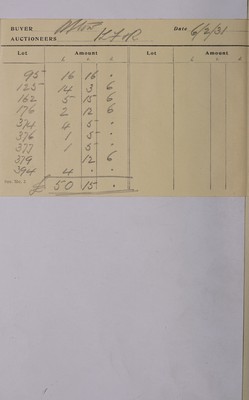 BUYER Date 6/2/31
AUCTIONEERS H.F.R
Lot Amount Lot Amount
£ s d £ s d
95 16 16 .
125 14 3 6
162 5 15 6
176 2 12 6
374 4 5 .
376 1 5 .
377 1 5 .
379 12 6
394 4 . .
£ 50 15 .